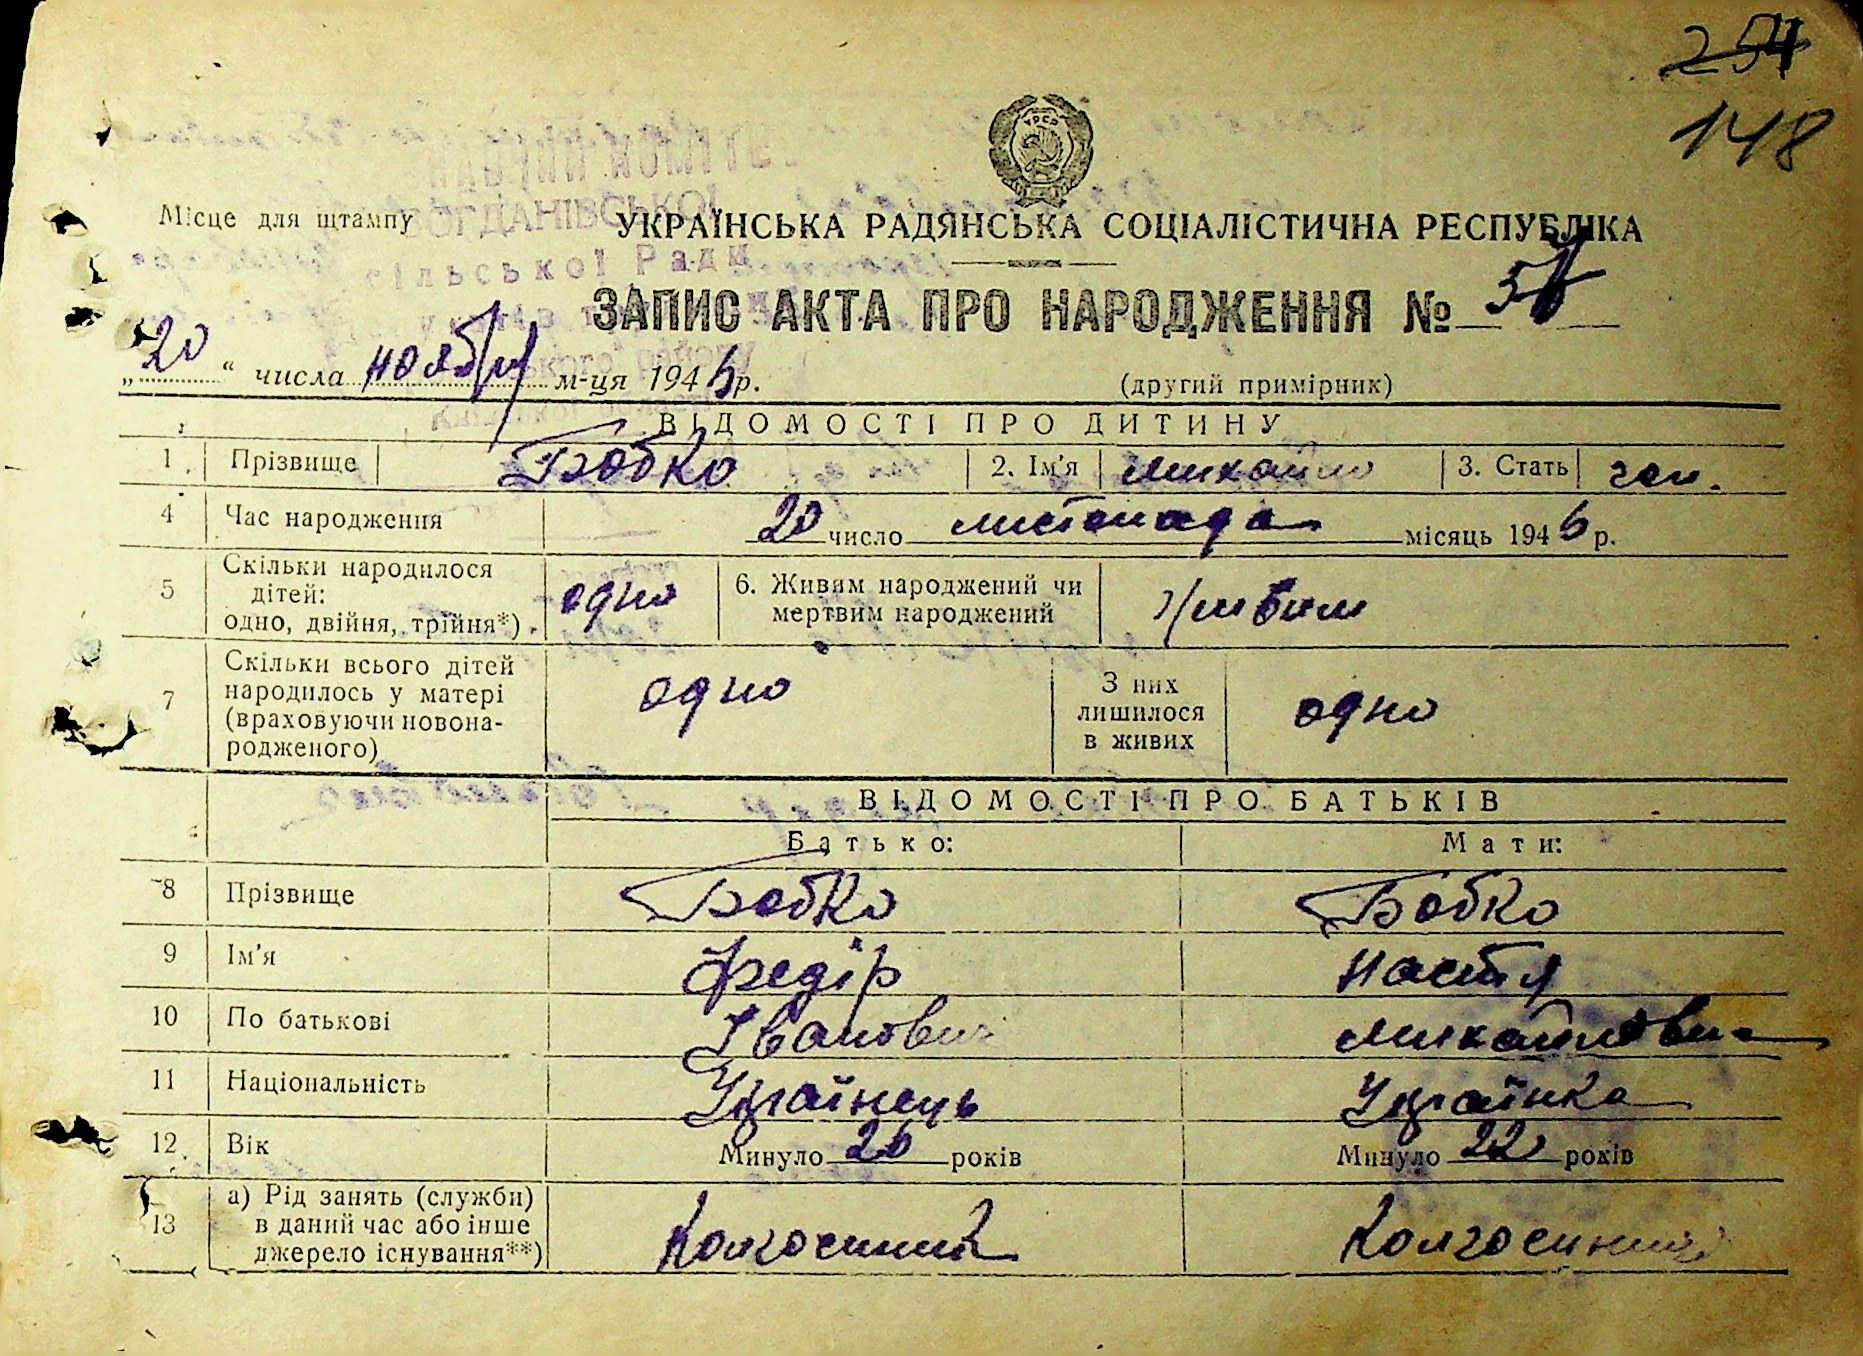 254
148
УРСР
БОГДАНІВСЬКОЇ
сільської Ради
Місце для штампу
УКРАЇНСЬКА РАДЯНСЬКА СОЦІАЛІСТИЧНА РЕСПУБЛІКА
ЗАПИС АКТА ПРО НАРОДЖЕННЯ №
„20“ числа ноября м-ця 1946 р.
(другий примірник)
ВІДОМОСТІ ПРО ДИТИНУ
1. Прізвище Бобко 2. Ім'я Михайло 3. Стать чол.
4 Час народження 20 число листопада місяць 1946 р.
5 Скільки народилося дітей: одно, двійня, трійня*) одно 6. Живим народжений чи мертвим народжений Живим
7 Скільки всього дітей народилось у матері (враховуючи новонародженого) одно З них лишилося в живих одно
ВІДОМОСТІ ПРО БАТЬКІВ
Батько: Мати:
8 Прізвище Бобко Бобко
9 Ім'я Федір Настя
10 По батькові Іванович Михайловна
11 Національність Українець Українка
12 Вік Минуло 26 років Минуло 22 років
13 а) Рід занять (служби) в даний час або інше джерело існування**) Колгоспник Колгоспниця